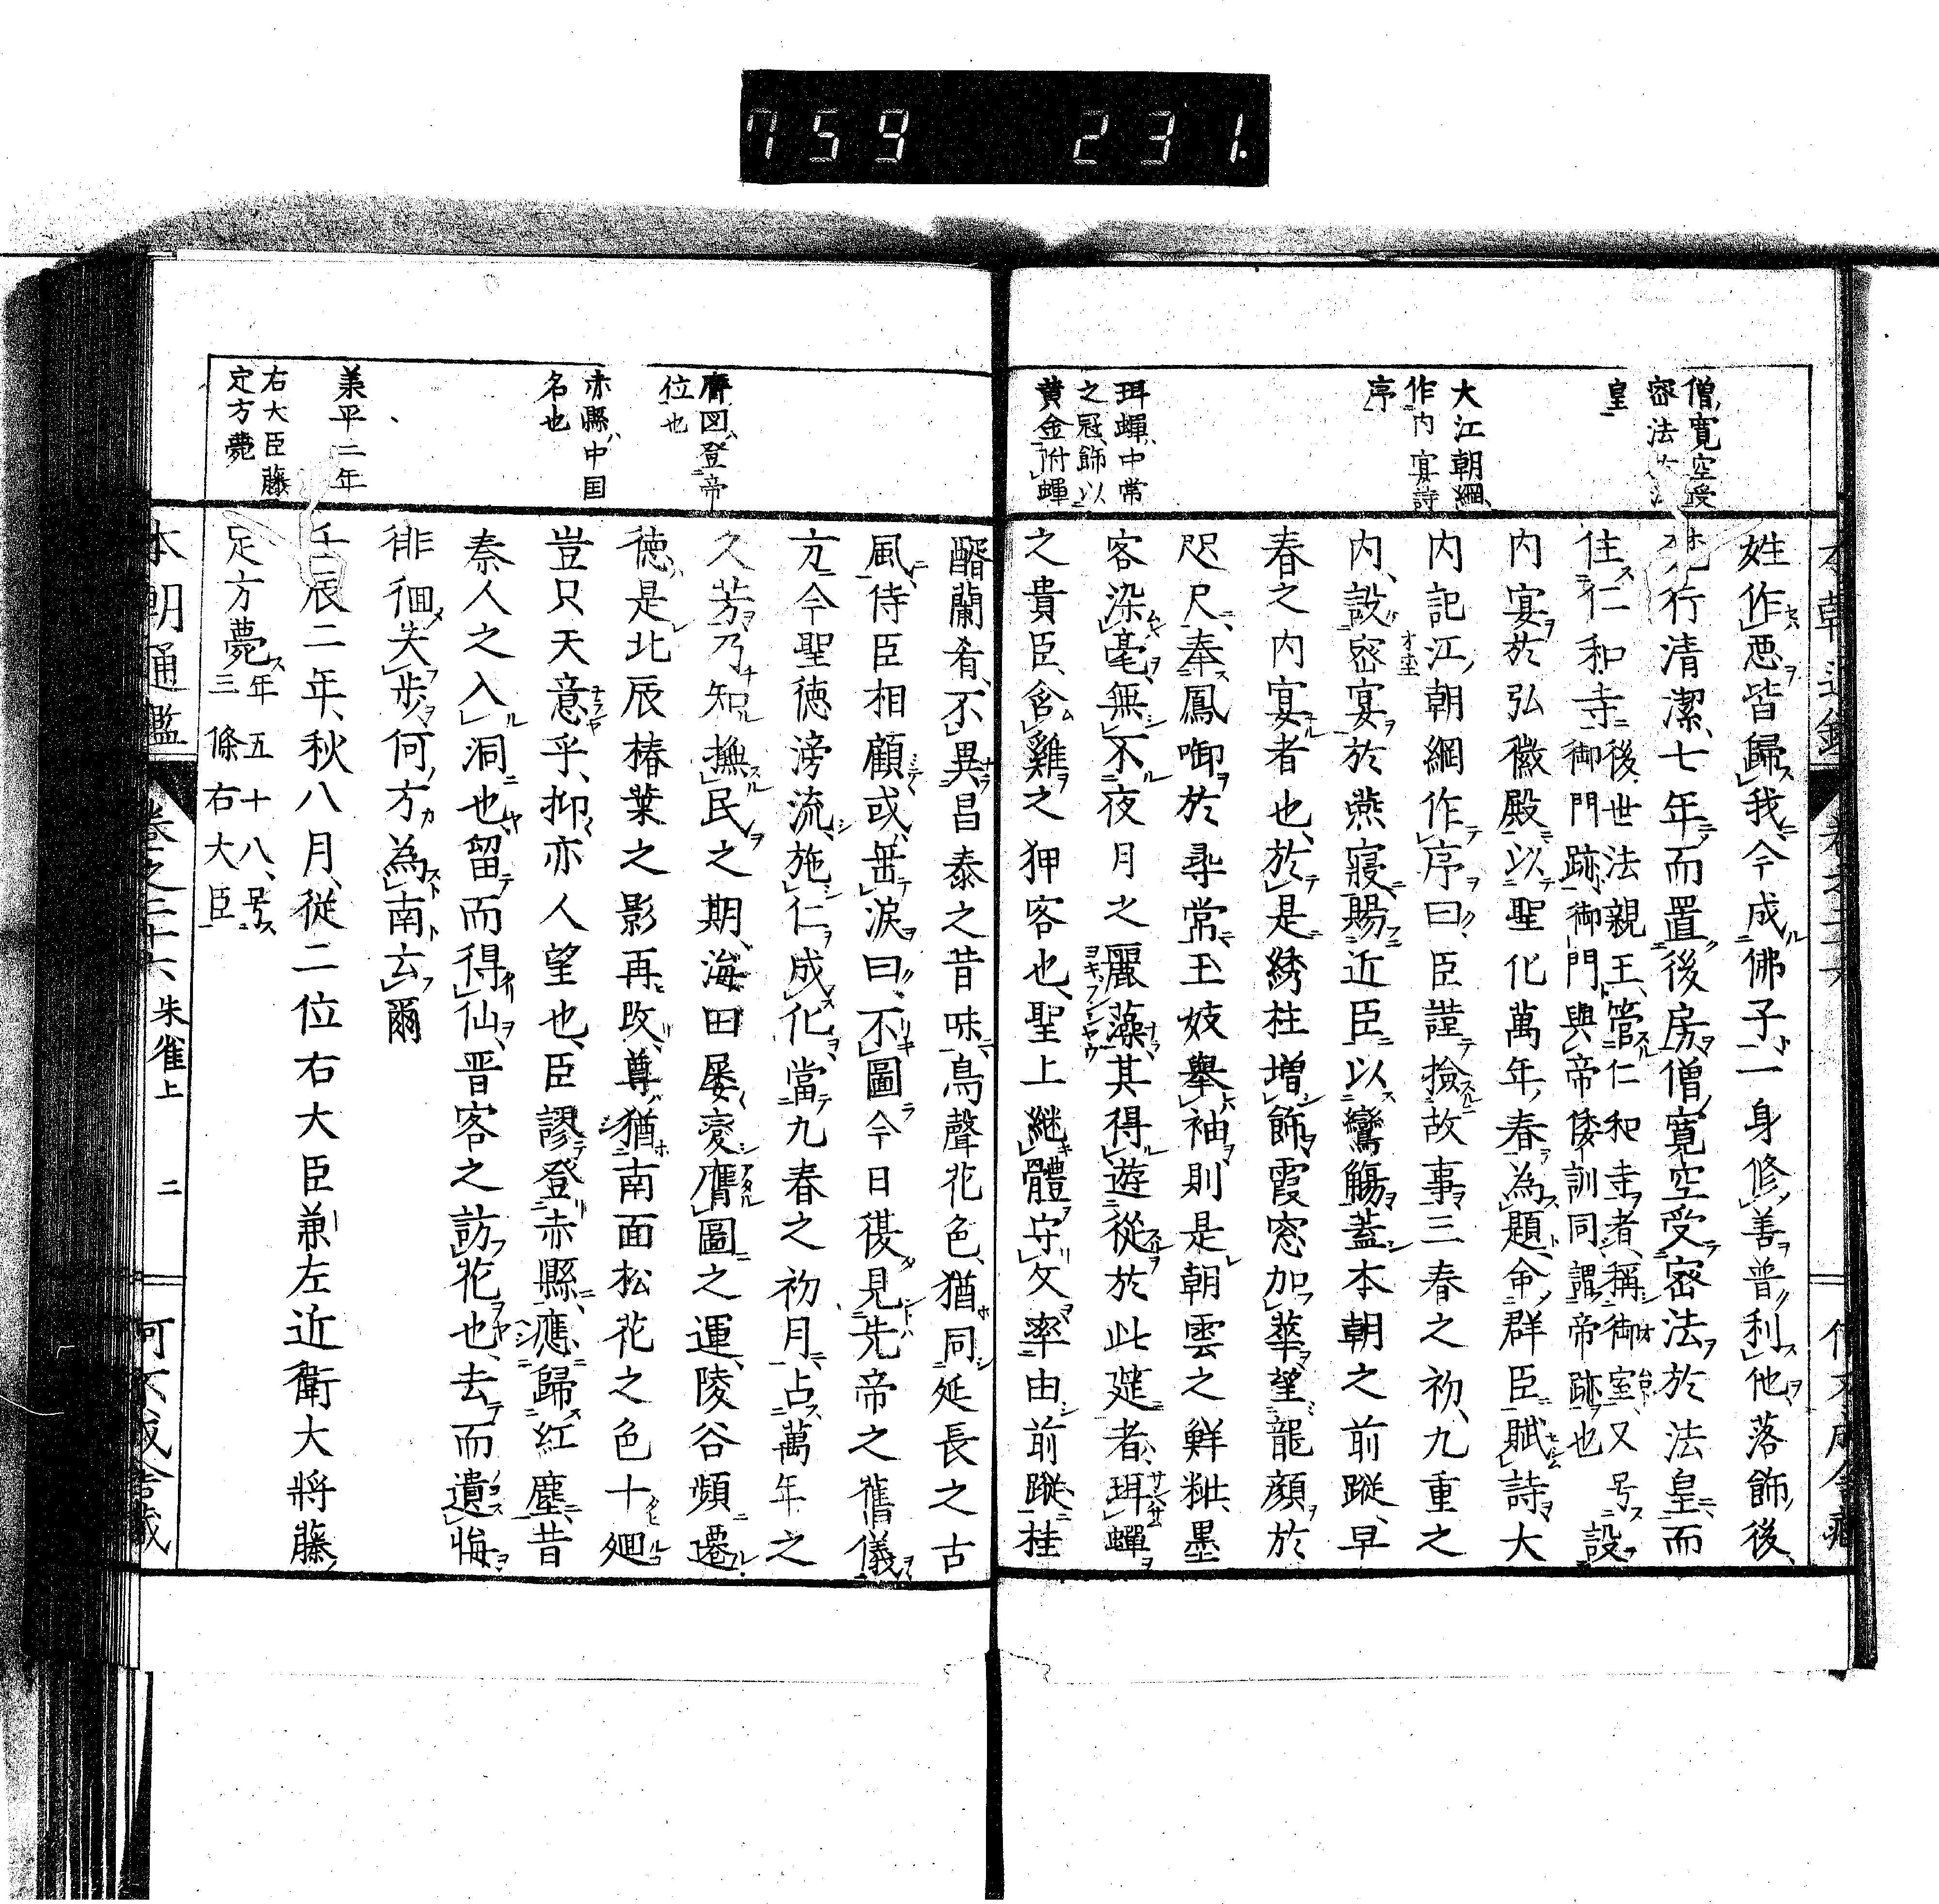 759 231.
僧寛空授
密法
皇
大江朝綱
作内宴詩
序
珥蟬中常
之冠飾以
黄金附蟬
姓作悪皆歸我今成佛子一身修善普利他落飾後
行清潔七年而置後房僧寛空受密法於法皇而
住仁和寺後世法親王管仁和寺者稱御室又号
御門跡御門與帝倭訓同謂帝跡也設
内宴於弘徽殿以聖化萬年春為題命群臣賦詩大
内記江朝綱作序曰臣謹撿故事三春之初九重之
内設密宴於燕寢賜近臣以鸞觴蓋本朝之前蹤早
春之内宴者也於是綉柱増飾霞窓加華望龍顔於
咫尺奉鳳啣於尋常玉妓擧袖則是朝雲之鮮粧墨
客染毫無不夜月之麗藻其得遊從於此筵者珥蟬
之貴臣含雞之狎客也聖上継體守文率由前蹤桂
膺図登帝
位也
赤縣中国
名也
承平二年
右大臣藤
定方薨
醑蘭肴不異昌泰之昔味鳥聲花色猶同延長之古
風侍臣相顧或無涙曰不圖今日復見先帝之舊儀
方今聖徳滂流施仁成化當九春之初月占萬年之
久芳乃知撫民之期海田屡変膺圖之運陵谷頻遷
徳是北辰椿葉之影再改尊猶南面松花之色十廻
豈只天意乎抑亦人望也臣謬登赤縣應歸紅塵昔
秦人之入洞也留而得仙晋客之訪花也去而遺悔
徘徊失歩何方為南云爾
壬辰二年秋八月従二位右大臣兼左近衛大将藤
定方薨年五十八号
三條右大臣
本朝通鑑 巻之二十六 朱雀上 二